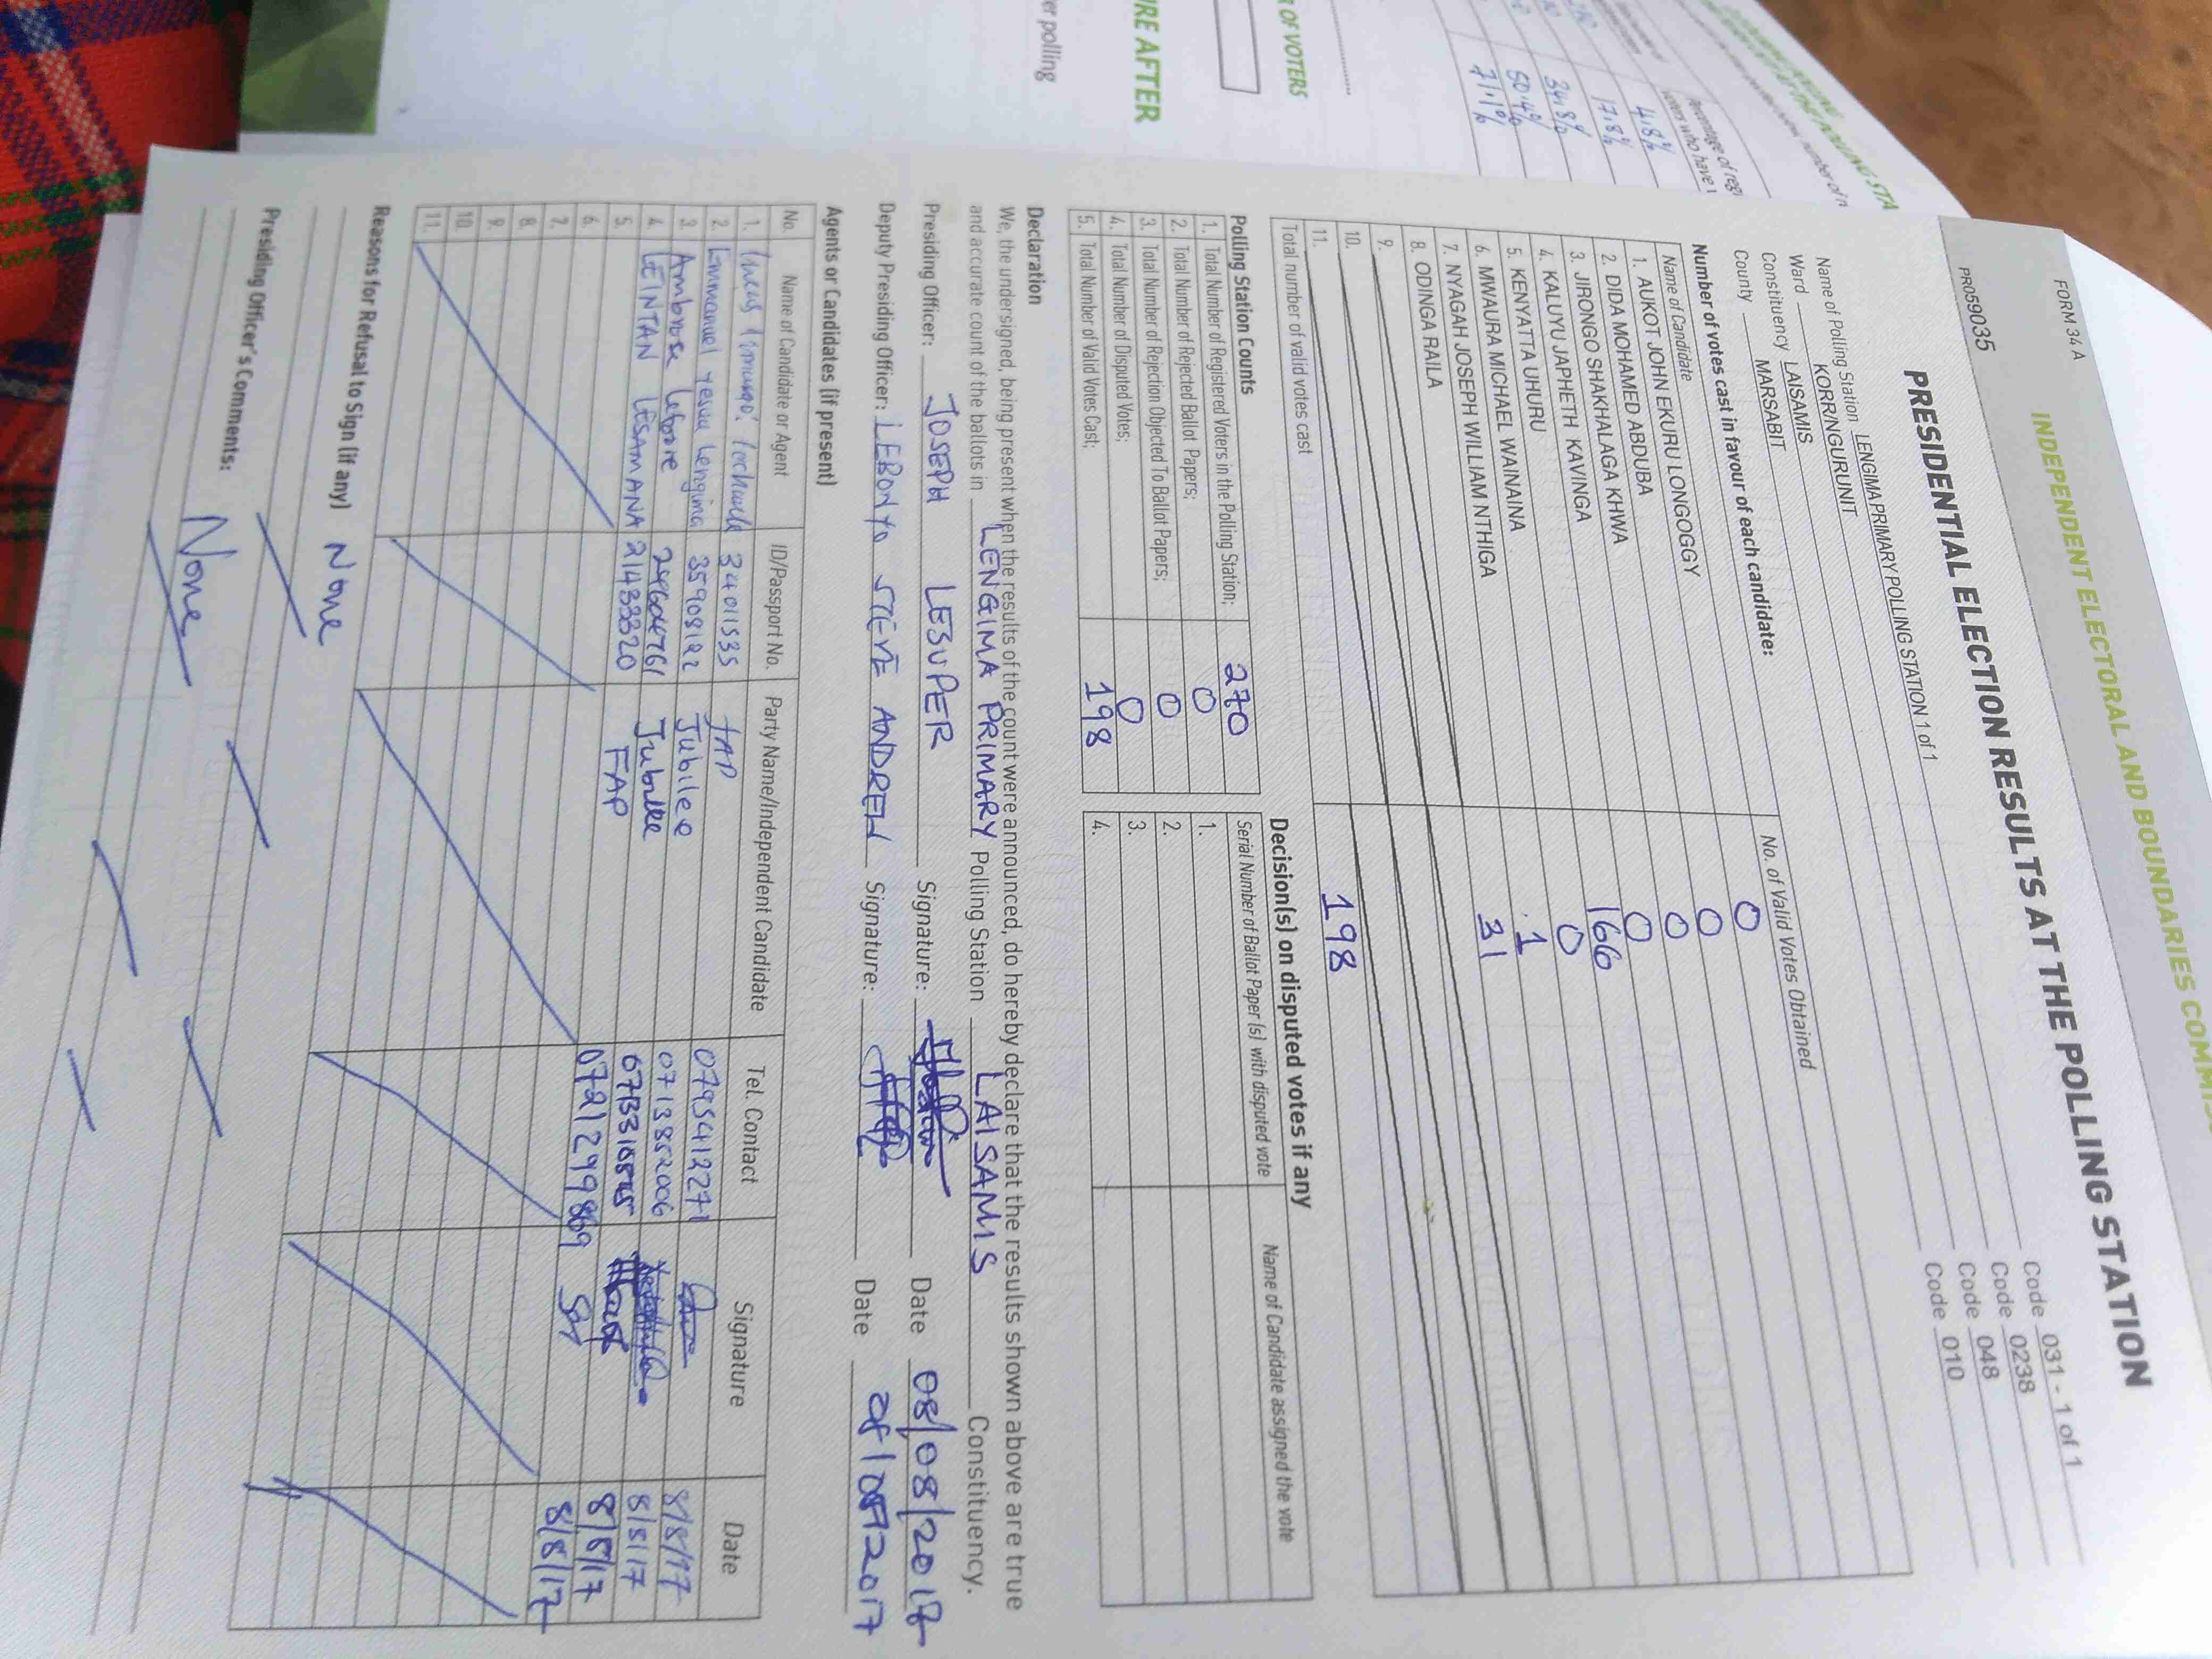 FORM 34 A
INDEPENDENT ELECTORAL AND BOUNDARIES
PR059035
PRESIDENTIAL ELECTION RESULTS AT THE POLLING STATION
Name of Polling Station LENGIMA PRIMARY POLLING STATION 1 of 1 Code 031 - 1 of 1
Ward KORR/NGURUNIT Code 0238
Constituency LAISAMIS Code 048
County MARSABIT Code 010
Number of votes cast in favour of each candidate:
Name of Candidate No. of Valid Votes Obtained
1. AUKOT JOHN EKURU LONGOGGY 0
2. DIDA MOHAMED ABDUBA 0
3. JIRONGO SHAKHALAGA KHWA 0
4. KALUYU JAPHETH KAVINGA 0
5. KENYATTA UHURU 166
6. MWAURA MICHAEL WAINAINA 0
7. NYAGAH JOSEPH WILLIAM NTHIGA 1
8. ODINGA RAILA 31
9.
10.
11.
Total number of valid votes cast 198
Polling Station Counts
1. Total Number of Registered Voters in the Polling Station; 270
2. Total Number of Rejected Ballot Papers; 0
3. Total Number of Rejection Objected To Ballot Papers; 0
4. Total Number of Disputed Votes; 0
5. Total Number of Valid Votes Cast; 198
Decision(s) on disputed votes if any
Serial Number of Ballot Paper (s) with disputed vote Name of Candidate assigned the vote
1.
2.
3.
4.
Declaration
We, the undersigned, being present when the results of the count were announced, do hereby declare that the results shown above are true
and accurate count of the ballots in LENGIMA PRIMARY Polling Station LAISAMIS Constituency.
Presiding Officer: JOSEPH LESUPER Signature: Date 08/08/2017
Deputy Presiding Officer: LEBONYO STEVE ANDREW Signature: Date 08/08/2017
Agents or Candidates (if present)
No. Name of Candidate or Agent ID/Passport No. Party Name/Independent Candidate Tel. Contact Signature Date
1. 34011535 FAP 0795412271 8/8/17
2. Emmanuel Yesuu Lengima 35908122 Jubilee 0713852006 8/8/17
3. Ambrose 24604761 Jubilee 8/8/17
4. LEINTAN LESAMANA 21433320 FAP 0721299869 8/8/17
5.
6.
7.
8.
9.
10.
11.
Reasons for Refusal to Sign (if any) None
Presiding Officer's Comments:
None
R OF VOTERS
RE AFTER
er polling
4.8%
17.8%
34.8%
50.4%
71.1%